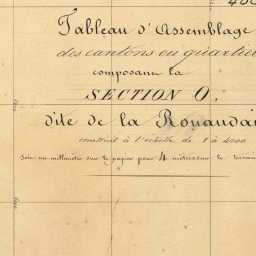 Tableau d'Assemblage
des cantons ou quartie
composant la
SECTION O.
dite de la Rouauda
construit à l'échelle de 1 à 4000
soit un millimètre sur le papier pour 4 mètres sur le terrain